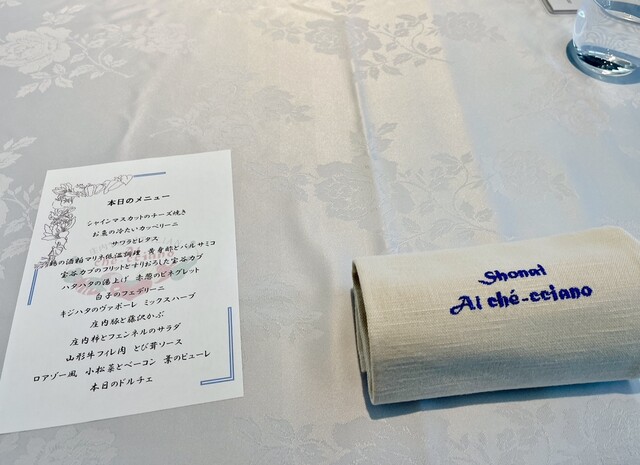 本日のメニュー
シャインマスカットのチーズ焼き
お魚の冷たいカッペリーニ
サワラとレタス
鶏の酒粕マリネ低温調理 黄身酢とバルサミコ
宝谷カブのフリットとすりおろした宝谷カブ
ハタハタの湯上げ 赤葱のビネグレット
白子のフェデリーニ
キジハタのヴァポーレ ミックスハーブ
庄内豚と藤沢かぶ
庄内柿とフェンネルのサラダ
山形牛フィレ肉 とび茸ソース
ロアゾー風 小松菜とベーコン 葱のピューレ
本日のドルチェ
Shonai
Al ché-cciano